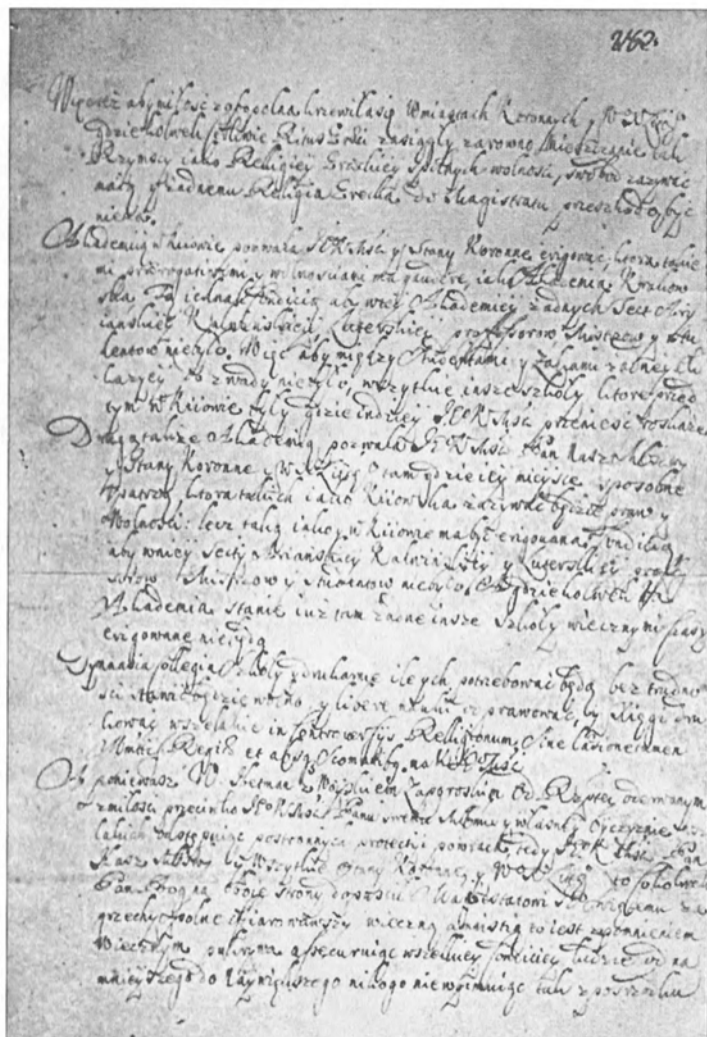 262.
aby miłość pospolita krzewiła się w miastach Koronnych y W X Litt
gdziekolwiek Ritus Graeci zasiągły zarowno Mieszczanie tak
Rzymscy iako Religiey Graeckiey spolnych wolności, swobod zazywać
maią y żadnemu Religia Graecka do Magistratu przeszkodą być
nie ma.
Akademią w Kiiowie pozwala JKMść y Stany Koronne erigować, ktora takie
mi praerogatiwami y wolnościami ma gaudere, iako Akademia Krakow
ska. Tą iednak Condicią aby w tey Akademiey żadnych Sect Arry
iańskiey Kalwińskiey Luterskiey professorow Mistrzow y stu
dentow nie było. Więc aby między Studentami y żakami żadney o
kazyey do zwady nie było, wszytkie insze szkoły ktore przed
tym w Kiiowie były gdzie indziey JKMść przenieść roskaże.
Drugą także Akademią pozwala JKMść Pan nasz Mciwy
y Stany Koronne y W X Litt tam gdzie iey mieysce sposobne
upatrzą, ktora takich iako Kiiowska zazywać będzie praw y
Wolności: lecz taką iako y w Kiiowie ma być erigowana Condicią
aby w niey Secty Arianskiey Kalwinskiey y Luterskiey profes
sorow Mistrzow y Studentow nie było. A gdziekolwiek ta
Akademia stanie iuż tam żadne insze szkoły wiecznymi czasy
erigowane nie będą
Gymnasia Collegia Szkoły y drukarnie ile ych potrzebować będą bez trudno
ści stawić będzie wolno y libere nauki odprawować, y Xięgi dru
kować wszelakie in Controversys Religionum, Sine laesione tamen
Mttis Regiae et absq na KJMść
A ponieważ W. Hetman z Woyskiem Zaporoskim Od Rzptey oderwanym
z miłości przeciwko JKMści Panu swemu Mościwemu y własney Oyczyznie
lakich zastępuiąc postronnych protectii powraca, tedy JKMść Pan
Nasz Miłościwy y Wszytkie Stany Koronne y W X Litt to cokolwiek
Pan Bog na obie strony dopuścił Maiestatowi swoiemu za
grzechy spolne ofiarowawszy wieczną amnistią to iest zapomnieniem
wiecznym pokrywa assecuruiąc wszelkiey Condiciey ludzie od na
mnieyszego do naywiększego nikogo nie wyimuiąc tak z pocztu